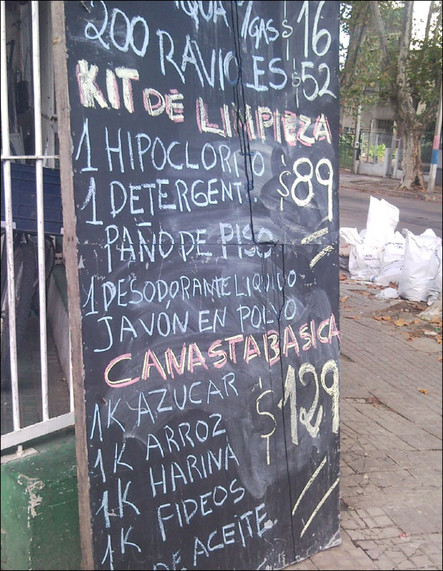 GAS $16
200 RAVIOLES $52
KIT DE LIMPIEZA
1 HIPOCLORITO
1 DETERGENT. $89
PAÑO DE PISO
1 DESODORANTE LIQUIDO
JAVON EN POLVO
CANASTA BASICA
1K AZUCAR $129
1K ARROZ
1K HARINA
1K FIDEOS
DE ACEITE